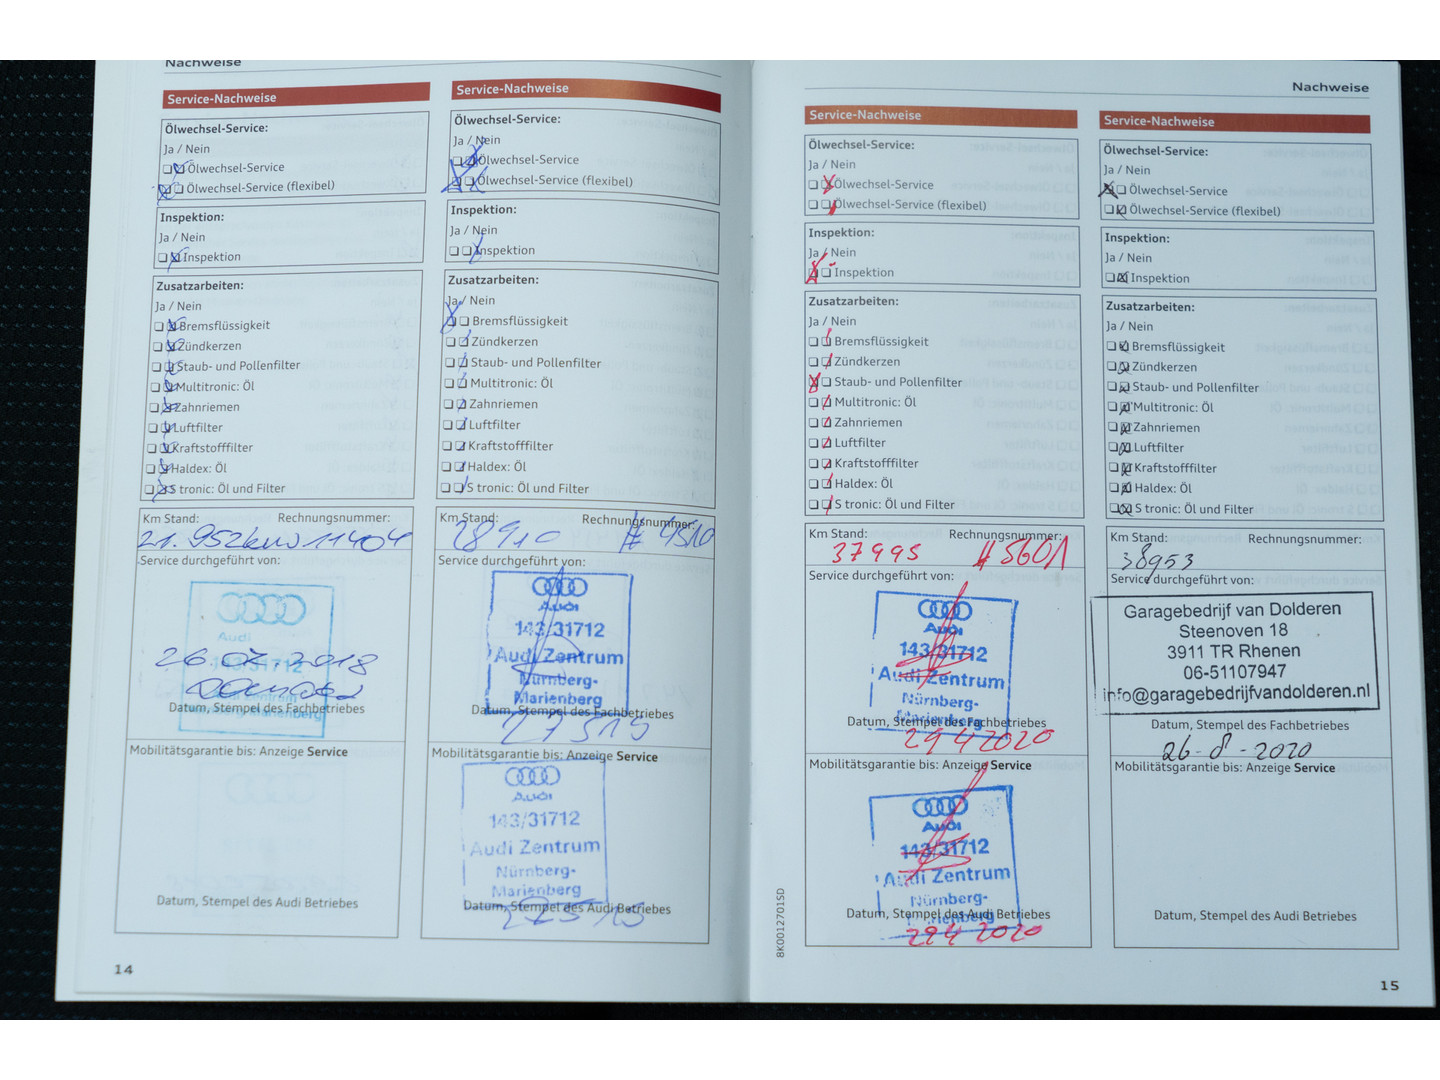 Nachweise
Service-Nachweise
Ölwechsel-Service:
Ja / Nein
Ölwechsel-Service
Ölwechsel-Service (flexibel)
Inspektion:
Ja / Nein
Inspektion
Zusatzarbeiten:
Ja / Nein
Bremsflüssigkeit
Zündkerzen
Staub- und Pollenfilter
Multitronic: Öl
Zahnriemen
Luftfilter
Kraftstofffilter
Haldex: Öl
S tronic: Öl und Filter
Km Stand: Rechnungsnummer:
21.952km 11404
Service durchgeführt von:
Audi
143/31712
26.07.2018
Zentrum
Nürnberg-Marienberg
Datum, Stempel des Fachbetriebes
Mobilitätsgarantie bis: Anzeige Service
Datum, Stempel des Audi Betriebes
14
Service-Nachweise
Ölwechsel-Service:
Ja / Nein
Ölwechsel-Service
Ölwechsel-Service (flexibel)
Inspektion:
Ja / Nein
Inspektion
Zusatzarbeiten:
Ja / Nein
Bremsflüssigkeit
Zündkerzen
Staub- und Pollenfilter
Multitronic: Öl
Zahnriemen
Luftfilter
Kraftstofffilter
Haldex: Öl
S tronic: Öl und Filter
Km Stand: Rechnungsnummer:
28910 # 4510
Service durchgeführt von:
Audi
143/31712
Audi Zentrum
Nürnberg-
Marienberg
Datum, Stempel des Fachbetriebes
27519
Mobilitätsgarantie bis: Anzeige Service
Audi
143/31712
Audi Zentrum
Nürnberg-
Marienberg
Datum, Stempel des Audi Betriebes
27519
Nachweise
Service-Nachweise
Ölwechsel-Service:
Ja / Nein
Ölwechsel-Service
Ölwechsel-Service (flexibel)
Inspektion:
Ja / Nein
Inspektion
Zusatzarbeiten:
Ja / Nein
Bremsflüssigkeit
Zündkerzen
Staub- und Pollenfilter
Multitronic: Öl
Zahnriemen
Luftfilter
Kraftstofffilter
Haldex: Öl
S tronic: Öl und Filter
Km Stand: Rechnungsnummer:
37995 # 5601
Service durchgeführt von:
Audi
143/31712
Audi Zentrum
Nürnberg-
Marienberg
Datum, Stempel des Fachbetriebes
29 4 2020
Mobilitätsgarantie bis: Anzeige Service
Audi
143/31712
Audi Zentrum
Nürnberg-
Marienberg
Datum, Stempel des Audi Betriebes
29 4 2020
8K0012701SD
Service-Nachweise
Ölwechsel-Service:
Ja / Nein
Ölwechsel-Service
Ölwechsel-Service (flexibel)
Inspektion:
Ja / Nein
Inspektion
Zusatzarbeiten:
Ja / Nein
Bremsflüssigkeit
Zündkerzen
Staub- und Pollenfilter
Multitronic: Öl
Zahnriemen
Luftfilter
Kraftstofffilter
Haldex: Öl
S tronic: Öl und Filter
Km Stand: Rechnungsnummer:
38953
Service durchgeführt von:
Garagebedrijf van Dolderen
Steenoven 18
3911 TR Rhenen
06-51107947
info@garagebedrijfvandolderen.nl
Datum, Stempel des Fachbetriebes
26-8-2020
Mobilitätsgarantie bis: Anzeige Service
Datum, Stempel des Audi Betriebes
15